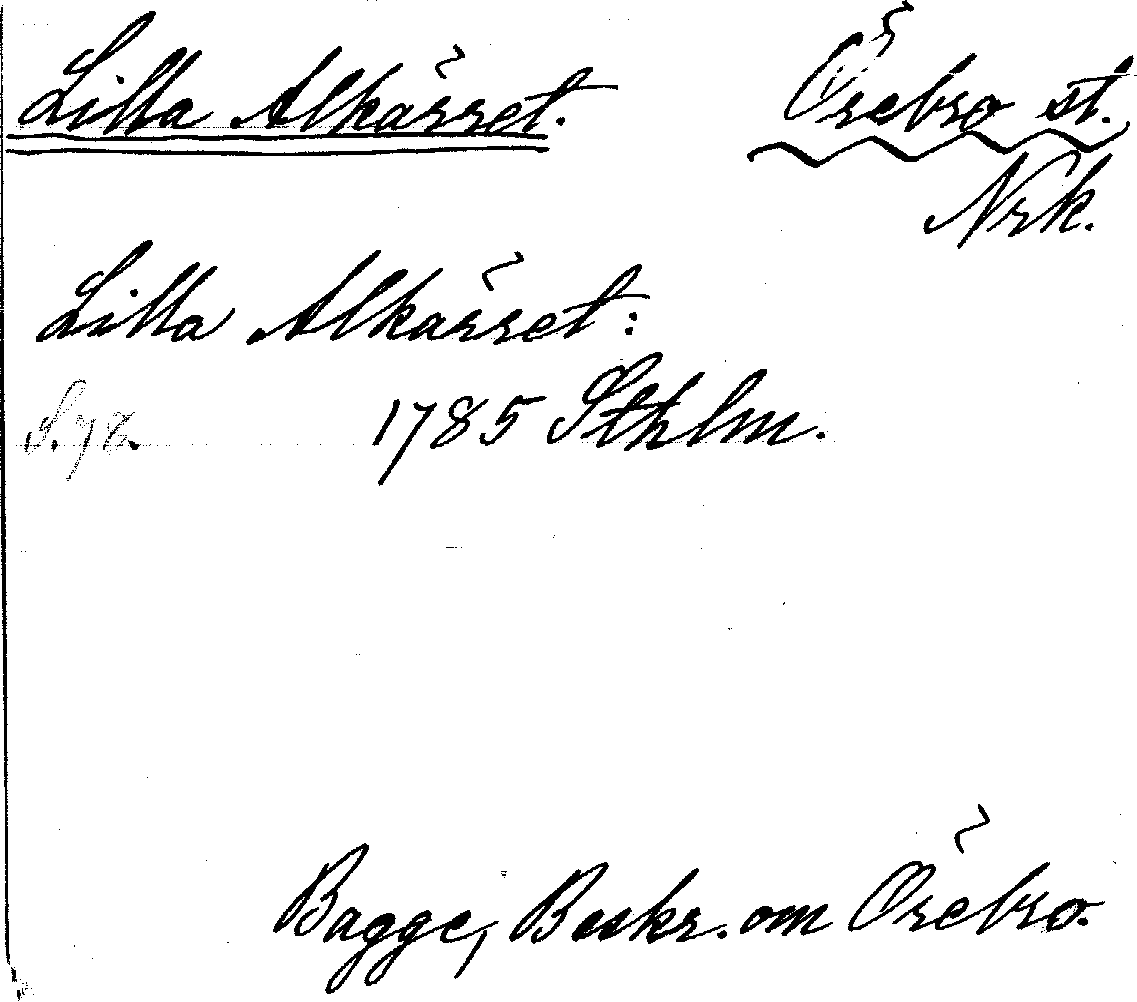 Lilla Alkärret. Örebro st.
Nrk.
Lilla Alkärret:
S. 78. 1785 Sthlm.
Bagge, Beskr. om Örebro.